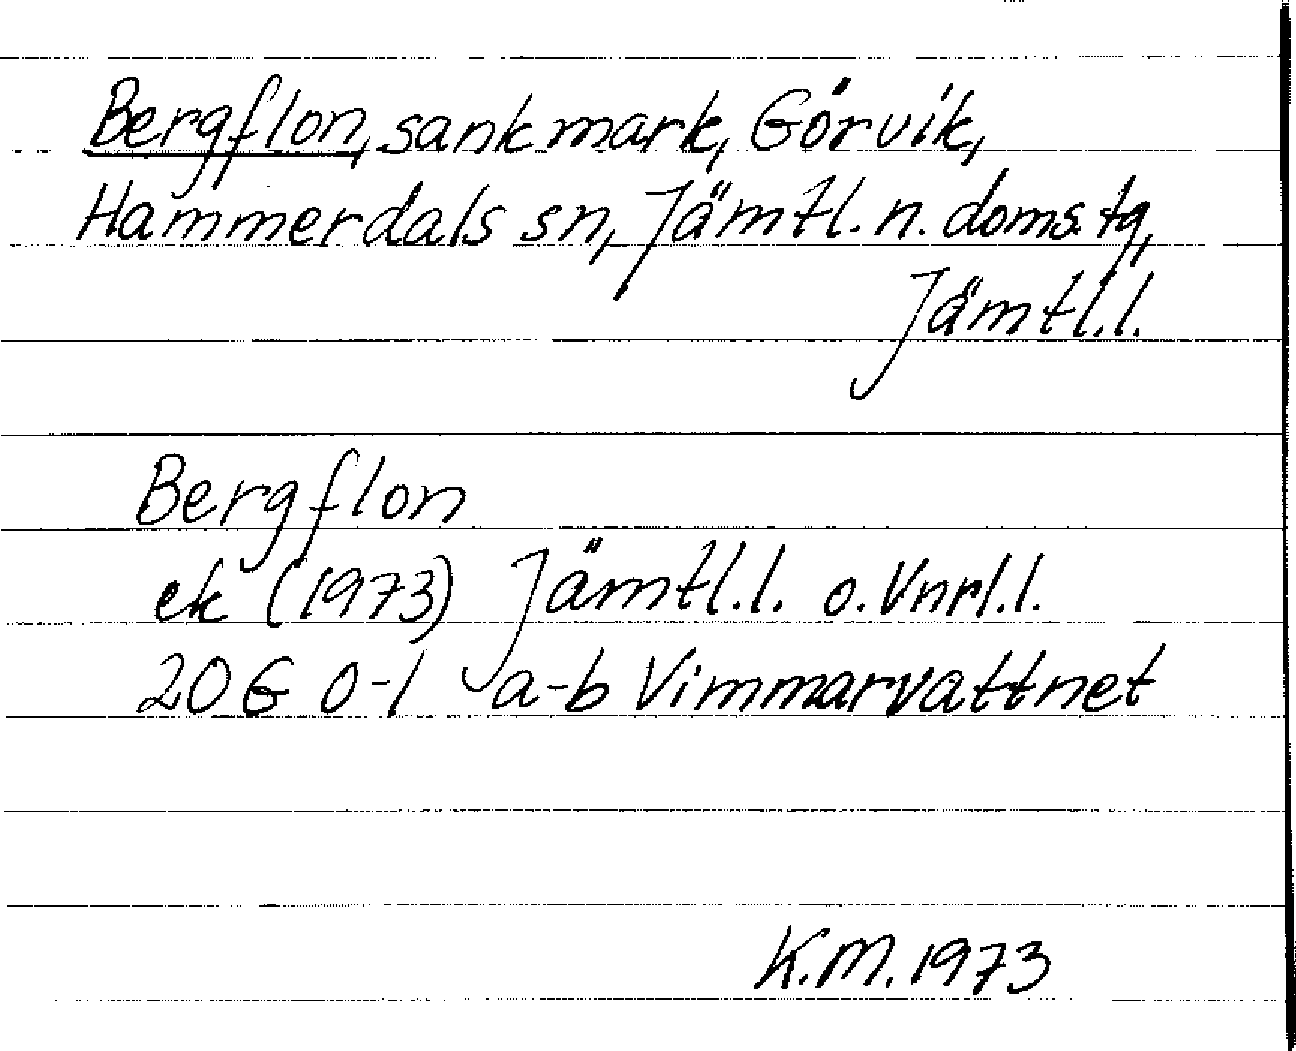 Bergflon, sank mark, Görvik,
Hammerdals sn, Jämtl. n. doms. tg,
Jämtl.l.
Bergflon
ek (1973) Jämtl.l. o. Vnrl.l.
20 G 0-1 a-b Vimmarvattnet
K.M. 1973